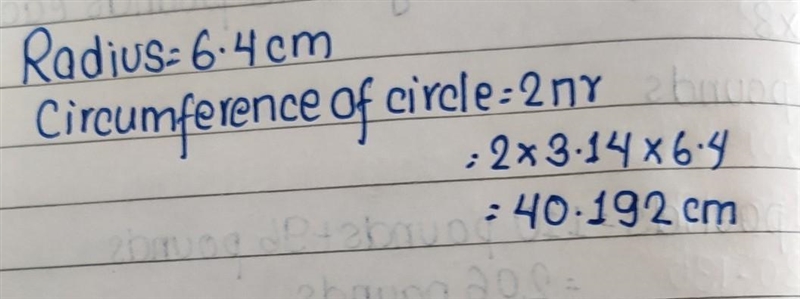 Radius=6.4cm
Circumference of circle=2πr
=2×3.14×6.4
=40.192cm